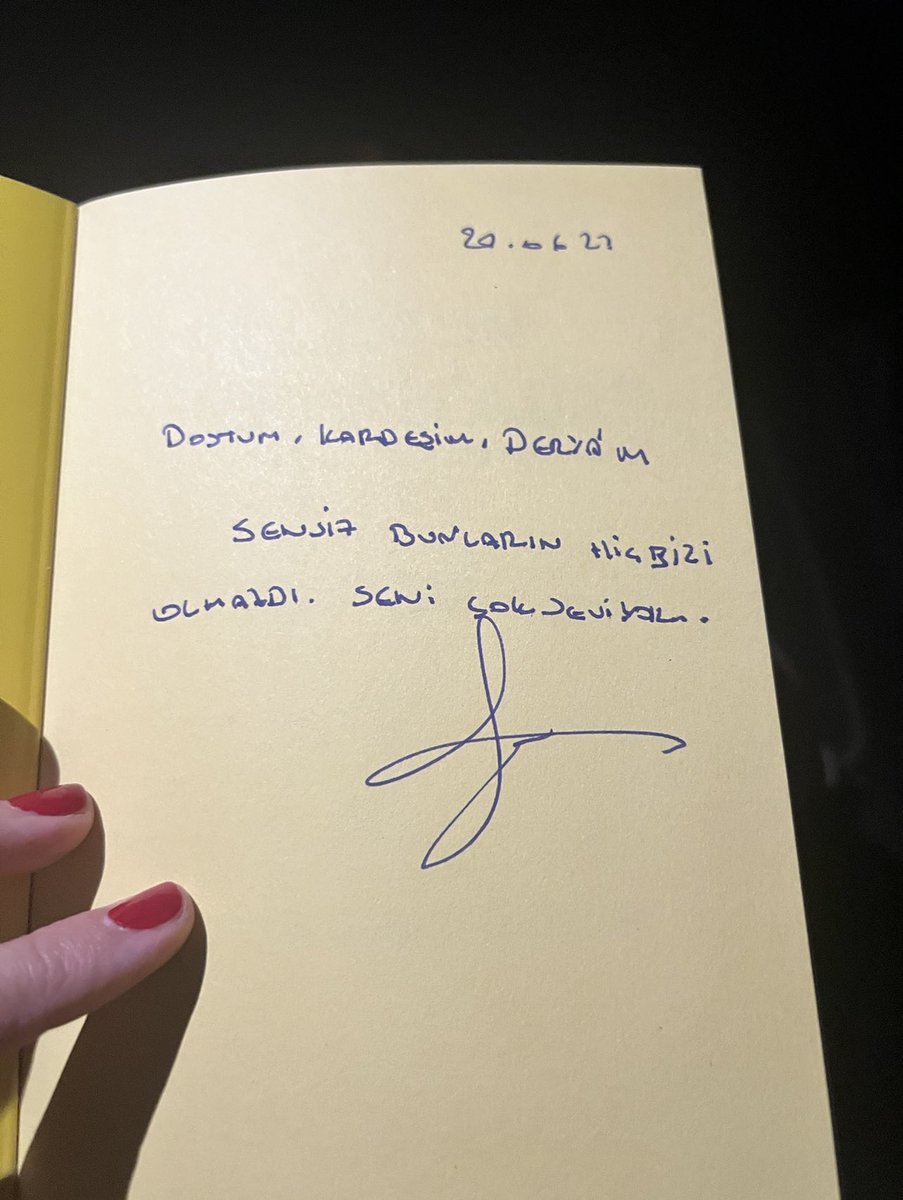 20.06 23
DOSTUM, KARDEŞİM, DERYA'M
SENSİZ BUNLARIN HİÇBİRİ
OLMAZDI. SENİ ÇOK SEVİYORUM.